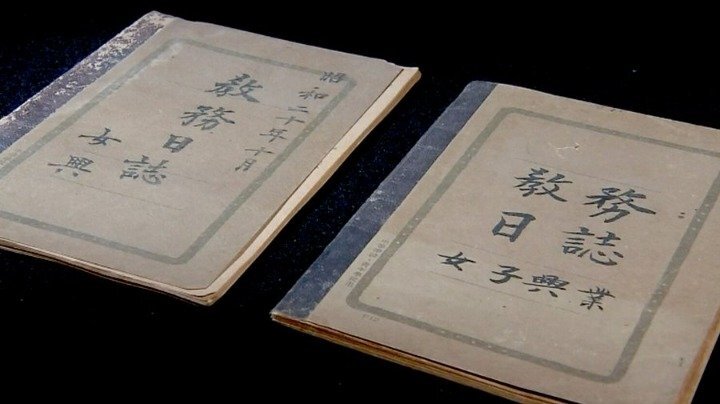 昭和二十年十月
教務日誌
女興
教務
日誌
女子興業